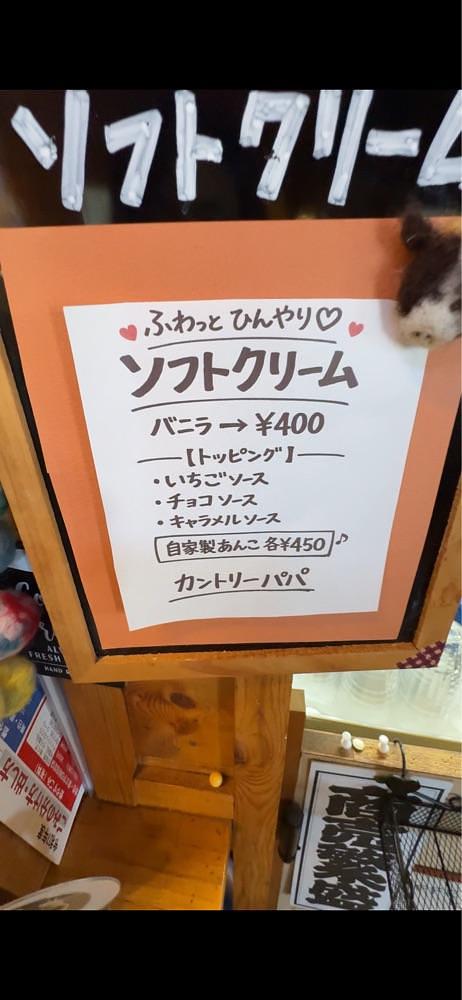 ソフトクリーム
ふわっと ひんやり♡
ソフトクリーム
バニラ → ¥400
【トッピング】
・いちごソース
・チョコソース
・キャラメルソース
自家製あんこ 各¥450♪
カントリーパパ
FRESH
HAND
ごみの分け方・出し方
商売繁盛